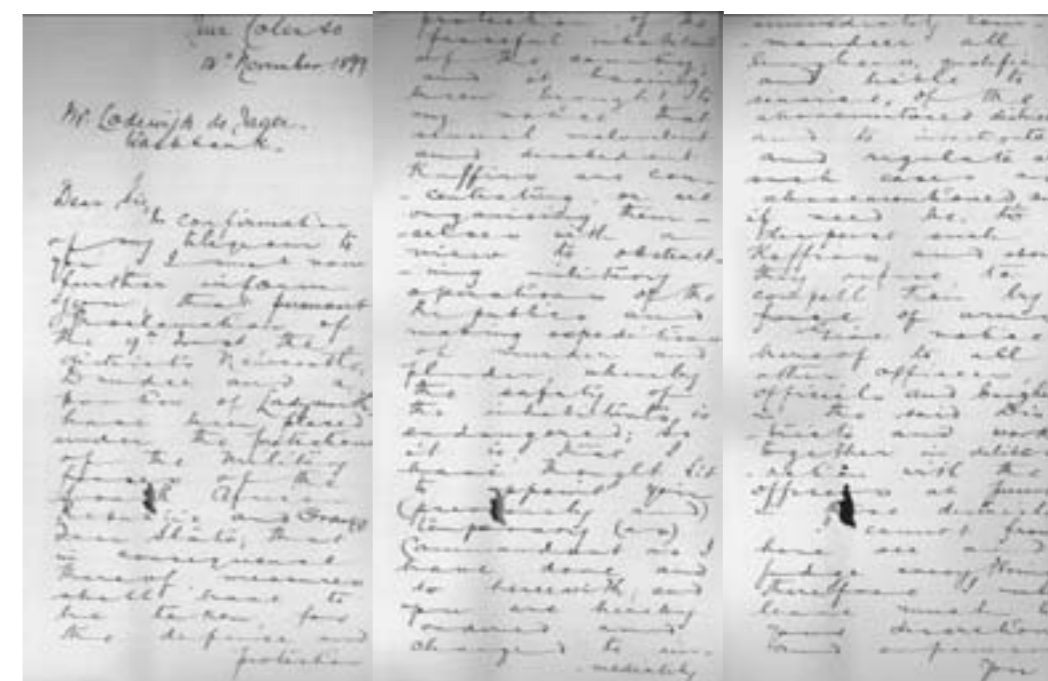 Near Colenso
November 1899
Mr. Lodewijk de Jager.
Washbank.
Dear Sir,
In confirmation
of my telegram to
you I must now
further inform
you, that pursuant
Proclamation of
the 9th Inst the
districts Newcastle,
Dundee and a
portion of Ladysmith
have been placed
under the protection
of the Military
Forces of the
South African
Republic and Orange
Free State, that
in consequence
thereof measures
shall have to
be taken for
the defense and
protection
protection of the
peaceful
of the country,
and it having
been brought to
my notice that
several malevolent
and disobedient
Kaffirs are con-
-centrating or are
organising them-
-selves with a
view to obstruct-
-ing military
operations of the
Republics and
making expeditions
of murder and
plunder whereby
the safety of
the inhabitants is
endangered; So
it is, that I
have thought fit
to appoint you
and
temporary (as)
Commandant as I
have done and
do herewith, and
you are hereby
ordered and
charged to im-
-mediately
immediately com-
-mandeer all
burghers,
and liable to
service, of the
abovementioned
and to
and regulate
such cases
abovementioned,
if need be, to
disperse such
Kaffirs and
they refuse to
compell them by
force of arms
Give notice
hereof to all
other officers
officials and
in the said Dis-
-tricts and work
together in
with the
officers at
cannot from
here see and
judge everything
therefore
leave much to
your discretion
and
Your